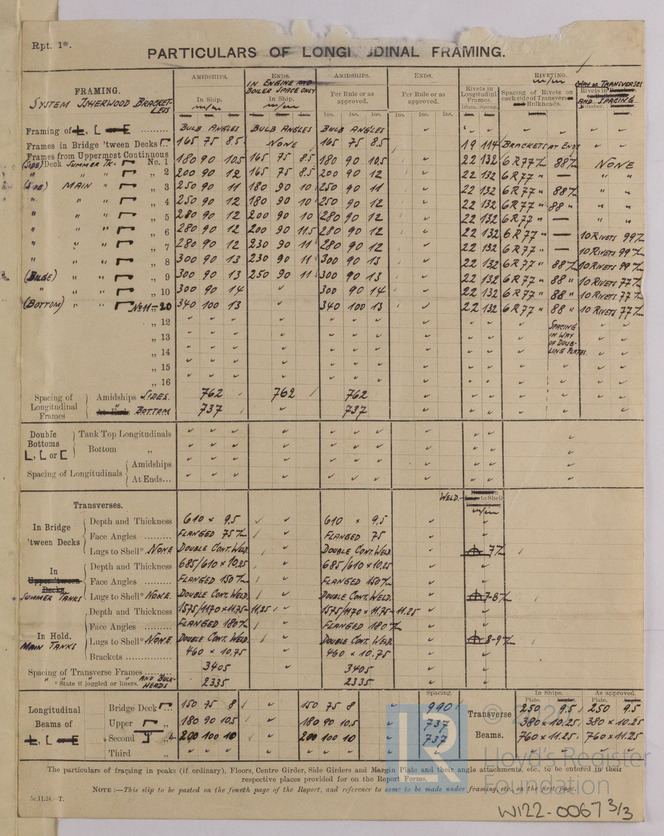 Rpt. 1*.
PARTICULARS OF LONGITUDINAL FRAMING.
FRAMING.
SYSTEM ISHERWOOD BRACKETLESS
AMIDSHIPS. In Ship. m/m
ENDS. IN ENGINE AND BOILER SPACE ONLY In Ship. m/m
AMIDSHIPS. Per Rule or as approved.
ENDS. Per Rule or as approved.
RIVETING. m/m
Rivets in Longitudinal Frames. Spacing of Rivets on each side of Transverse Bulkheads.
AND SPACING
Ins. Ins. Ins. Ins. Ins. Ins.
Framing of L, [ BULB ANGLES BULB ANGLES BULB ANGLES
Frames in Bridge 'tween Decks 165 75 8.5 NONE 165 75 8.5 19 114 BRACKETS AT ENDS
Frames from Uppermost Continuous
(SIDE) Deck SUMMER TK. No. 1 180 90 10.5 165 75 8.5 180 90 10.5 22 132 6R77 " 88 NONE
" 2 200 90 12 165 75 8.5 200 90 12 22 132 6R77 " — " "
(SIDE) MAIN " 3 250 90 11 180 90 10 250 90 11 22 132 6R77 " 88 " "
" 4 250 90 12 180 90 10 250 90 12 22 132 6R77 " 88 " " "
" 5 280 90 12 200 90 10 280 90 12 22 132 6R77 " — " "
" 6 280 90 12 200 90 11.5 280 90 12 22 132 6R77 " — 10 RIVETS 99
" 7 280 90 12 230 90 11 280 90 12 22 132 6R77 " — 10 RIVETS 99
" 8 300 90 13 230 90 11 300 90 13 22 132 6R77 " 88 10 RIVETS 99
(BILGE) " 9 300 90 13 250 90 11 300 90 13 22 132 6R77 " 88 " 10 RIVETS 77
" 10 300 90 14 300 90 14 22 132 6R77 " 88 " 10 RIVETS 77
(BOTTOM) " No 11-20 340 100 13 340 100 13 22 132 6R77 " 88 " 10 RIVETS 77
" 12 SPACING
" 13 IN WAY
" 14 OF DOUBLING PLATES
" 15
" 16
Spacing of Longitudinal Frames
Amidships SIDES. 762 762 762
BOTTOM 737 737
Double Bottoms L, [ or [
Tank Top Longitudinals
Bottom "
Spacing of Longitudinals
Amidships
At Ends...
Transverses.
WELD. to Shell m/m
In Bridge 'tween Decks
Depth and Thickness 610 × 9.5 610 × 9.5
Face Angles FLANGED 75 FLANGED 75
Lugs to Shell* NONE DOUBLE CONT. WELD. DOUBLE CONT. WELD. 7
In SUMMER TANKS
Depth and Thickness 685/610 × 10.25 685/610 × 10.25
Face Angles FLANGED 150 FLANGED 150
Lugs to Shell* NONE DOUBLE CONT. WELD. DOUBLE CONT. WELD. 7-8
In Hold. MAIN TANKS
Depth and Thickness 1575/1170 × 11.75-11.25 1575/1170 × 11.75-11.25
Face Angles FLANGED 180 FLANGED 180
Lugs to Shell* NONE DOUBLE CONT. WELD. DOUBLE CONT. WELD. 8-9
Brackets 460 × 10.75 460 × 10.75
Spacing of Transverse Frames 3405 3405
* State if joggled or liners. AND BULKHEADS 2335 2335
Longitudinal Beams of L, [
Spacing.
In Ships. As approved.
Plate. Plate.
Bridge Deck 150 75 8 150 75 8 990 250 9.5 250 9.5
Upper " 180 90 10.5 180 90 10.5 737 Transverse 380 × 10.25 380 × 10.25
Second " 200 100 10 200 100 10 737 Beams. 760 × 11.25 760 × 11.25
Third "
The particulars of framing in peaks (if ordinary), Floors, Centre Girder, Side Girders and Margin Plate and their angle attachments, etc., to be entered in their
respective places provided for on the Report Forms.
NOTE:—This slip to be pasted on the fourth page of the Report, and reference to same to be made under framing, etc., on the first page.
LR © 2021 Lloyd's Register Foundation
W122-0067 3/3